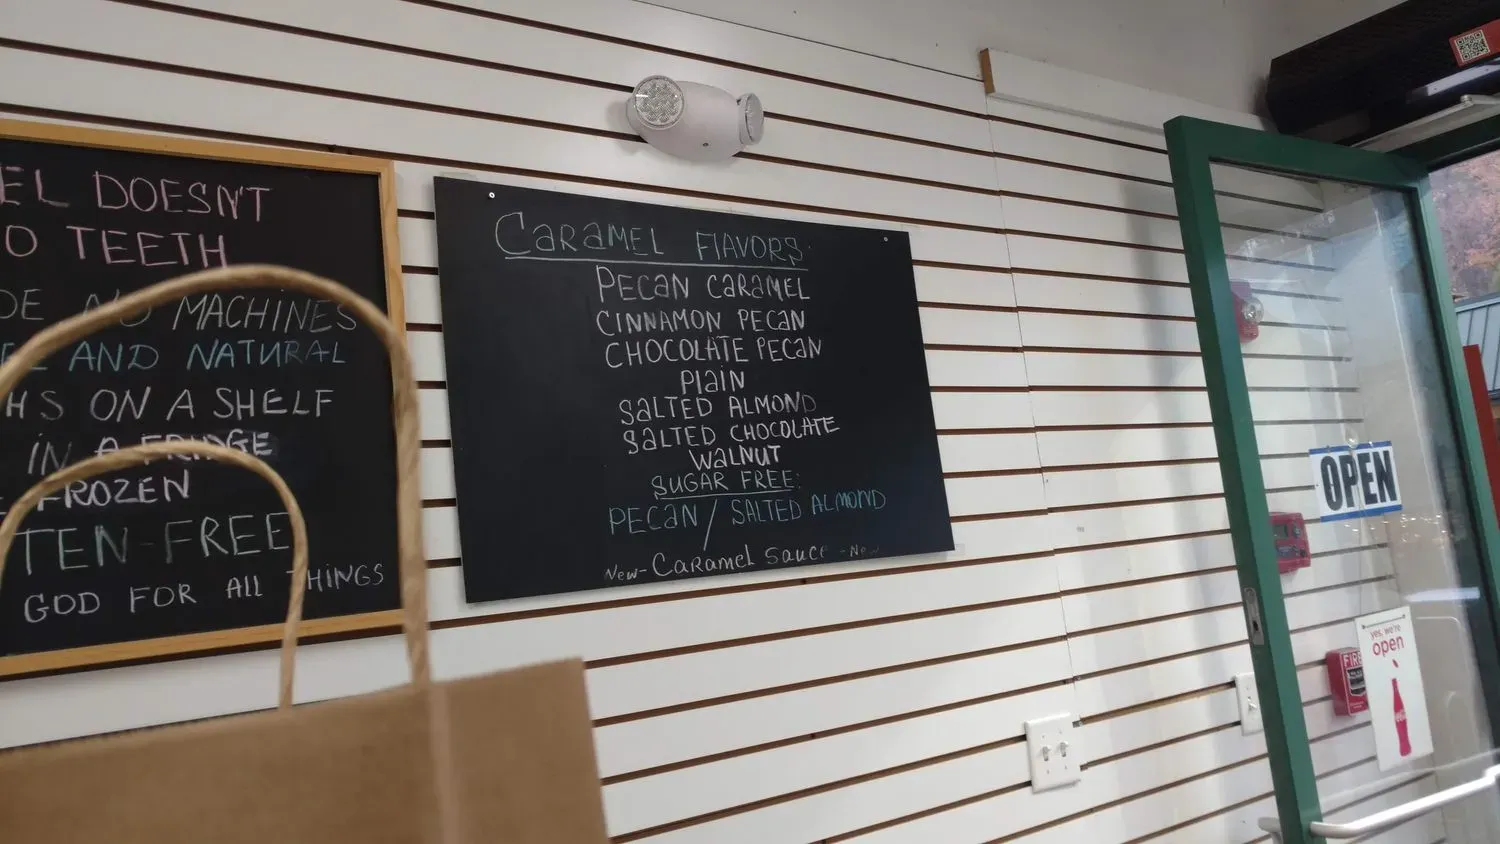 DOESN'T
TEETH
NO MACHINES
AND NATURAL
ON A SHELF
IN A FRIDGE
FROZEN
FREE
GOD FOR All THINGS
CARAMEL FlAVORS:
PECAN CARAMEL
CINNAMON PECAN
CHOCOLATE PECAN
PlAIN
SALTED ALMOND
SALTED CHOCOLATE
WALNUT
SUGAR FREE:
PECAN / SALTED ALMOND
New- Caramel Sauce - New
OPEN
yes, we're
open
FIRE